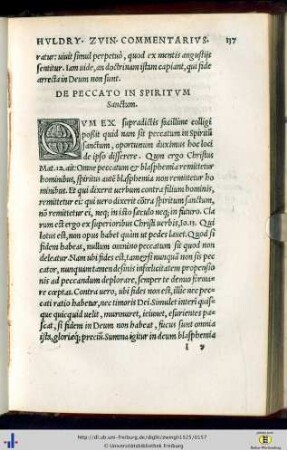 HVLDRY. ZVIN. COMMENTARIVS. 137
ratur: uiuit simul perpetuò, quod ex mentis angustijs
sentitur. Iam uide, an doctrinam istam capiant, qui fide
arrecta in Deum non sunt.
DE PECCATO IN SPIRITVM
Sanctum.
QVM EX supradictis facillime colligi
possit quid nam sit peccatum in Spiritũ
sanctum, oportunum duximus hoc loci
de ipso disserere. Quum ergo Christus
Mat. 12. ait: Omne peccatum & blasphemia remittetur
hominibus, spiritus autẽ blasphemia non remittetur ho
minibus. Et qui dixerit uerbum contra filium hominis,
remittetur ei: qui uero dixerit cõtra spiritum sanctum,
nõ remittetur ei, neq; in isto sæculo neq; in futuro. Cla
rum est ergo ex superioribus Christi uerbis, Io. 13. Qui
lotus est, non opus habet quàm ut pedes lauet. Quod si
fidem habeat, nullum omnino peccatum sit quod non
deleatur. Nam ubi fides est, tametsi nunquã non sis pec
cator, nunquam tamen desinis infœlicitatem propensio
nis ad peccandum deplorare, semper te denuo firmi
re cœptas. Contra uero, ubi fides non est, illic nec pec
cati ratio habetur, nec timoris Dei. Simulet interi quis
que quicquid uelit, murmuret, ieiunet, esurientes pa
scat, si fidem in Deum non habeat, fucus sunt omnia
ista, gloriæq; preciũ. Summa igitur in deum blasphemia
i v
http://dl.ub.uni-freiburg.de/diglit/zwingli1525/0157
© Universitätsbibliothek Freiburg